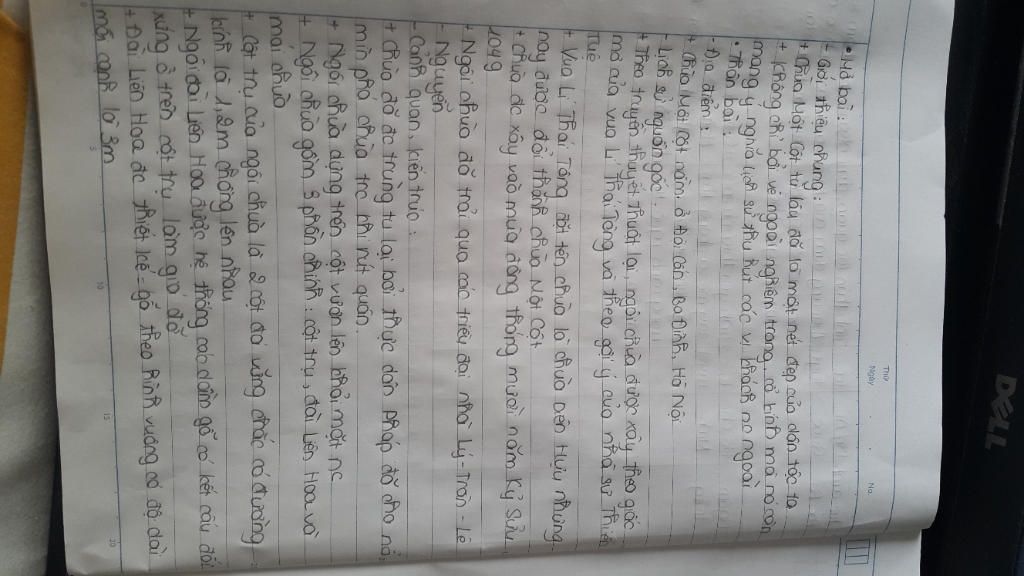 THỨ
NGÀY
No.
• Mở bài:
- Giới thiệu chung:
+ Chùa Một Cột từ lâu đã là một nét đẹp của dân tộc ta
+ Không chỉ bởi vẻ ngoài nghiêm trang, cổ kính mà nó còn
mang ý nghĩa lịch sử thu hút các vị khách nc ngoài
• Thân bài:
- Địa điểm:
+ Chùa Một cột nằm ở Đội Cấn, Ba Đình, Hà Nội
- Lịch sử nguồn gốc:
+ Theo truyền thuyết thuật lại ngôi chùa được xây theo giấc
mơ của vua Lí Thái Tông và theo gợi ý của nhà sư Thiền
Tuệ
+ Vua Lí Thái Tông đặt tên chùa là chùa Diên Hựu nhưng
nay được đổi thành chùa Một Cột
+ Chùa đc xây vào mùa đông tháng mười năm Kỷ Sửu
1049
+ Ngôi chùa đã trải qua các triều đại nhà Lý - Trần - Lê
- Nguyễn
- Cảnh quan, kiến trúc:
+ Chùa đã đc trùng tu lại bởi thực dân Pháp đã cho nổ
mìn phá chùa trc khi rút quân.
+ Ngôi chùa dựng trên cột vươn lên khỏi mặt nc
+ Ngôi chùa gồm 3 phần chính: cột trụ, đài Liên Hoa và
mái chùa
+ Cột trụ của ngôi chùa là 2 cột đá vững chắc có đường
kính là 1,2m chồng lên nhau
+ Ngôi đài Liên Hoa được hệ thống các dầm gỗ có kết cấu đối
xứng ở trên cột trụ làm giá đỡ
+ Đài Liên Hoa đc thiết kế gỗ theo hình vuông có độ dài
mỗi cạnh là 3m
5
10
15
20
DELL